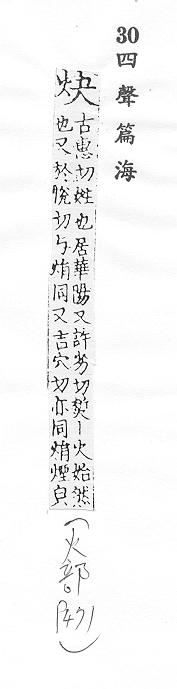 30 四聲篇海
炔
古惠切姓也居華陽又許劣切焚丨火始然
也又於悅切与焆同又吉穴切亦同焆煙皃
(火部